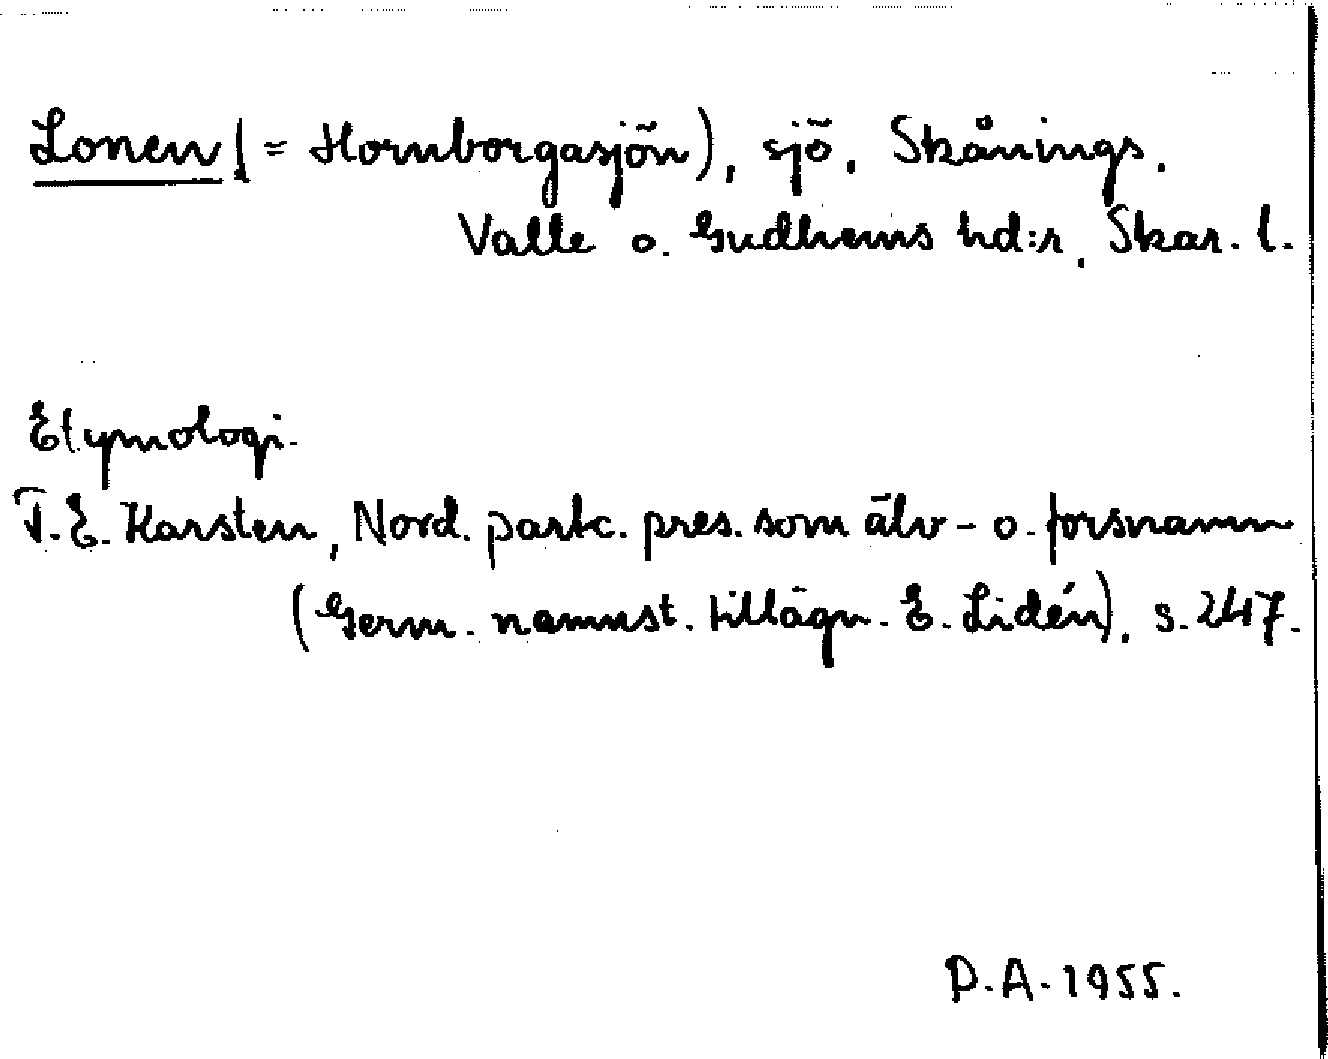 Lonen (= Hornborgasjön), sjö, Skånings,
Valle o. Gudhems hd:r, Skar. l.
Etymologi.
T.E. Karsten, Nord. partc. pres. som älv- o. forsnamn
(Germ. namnst. tillägn. E. Lidén), s. 247.
P.A. 1955.